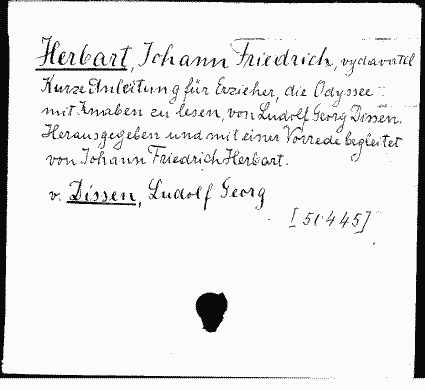 Herbart, Johann Friedrich, vydavatel
Kurze Anleitung für Erzieher, die Odyssee
mit Knaben zu lesen, von Ludolf Georg Dissen.
Herausgegeben und mit einer Vorrede begleitet
von Johann Friedrich Herbart.
v. Dissen, Ludolf Georg
[50445]